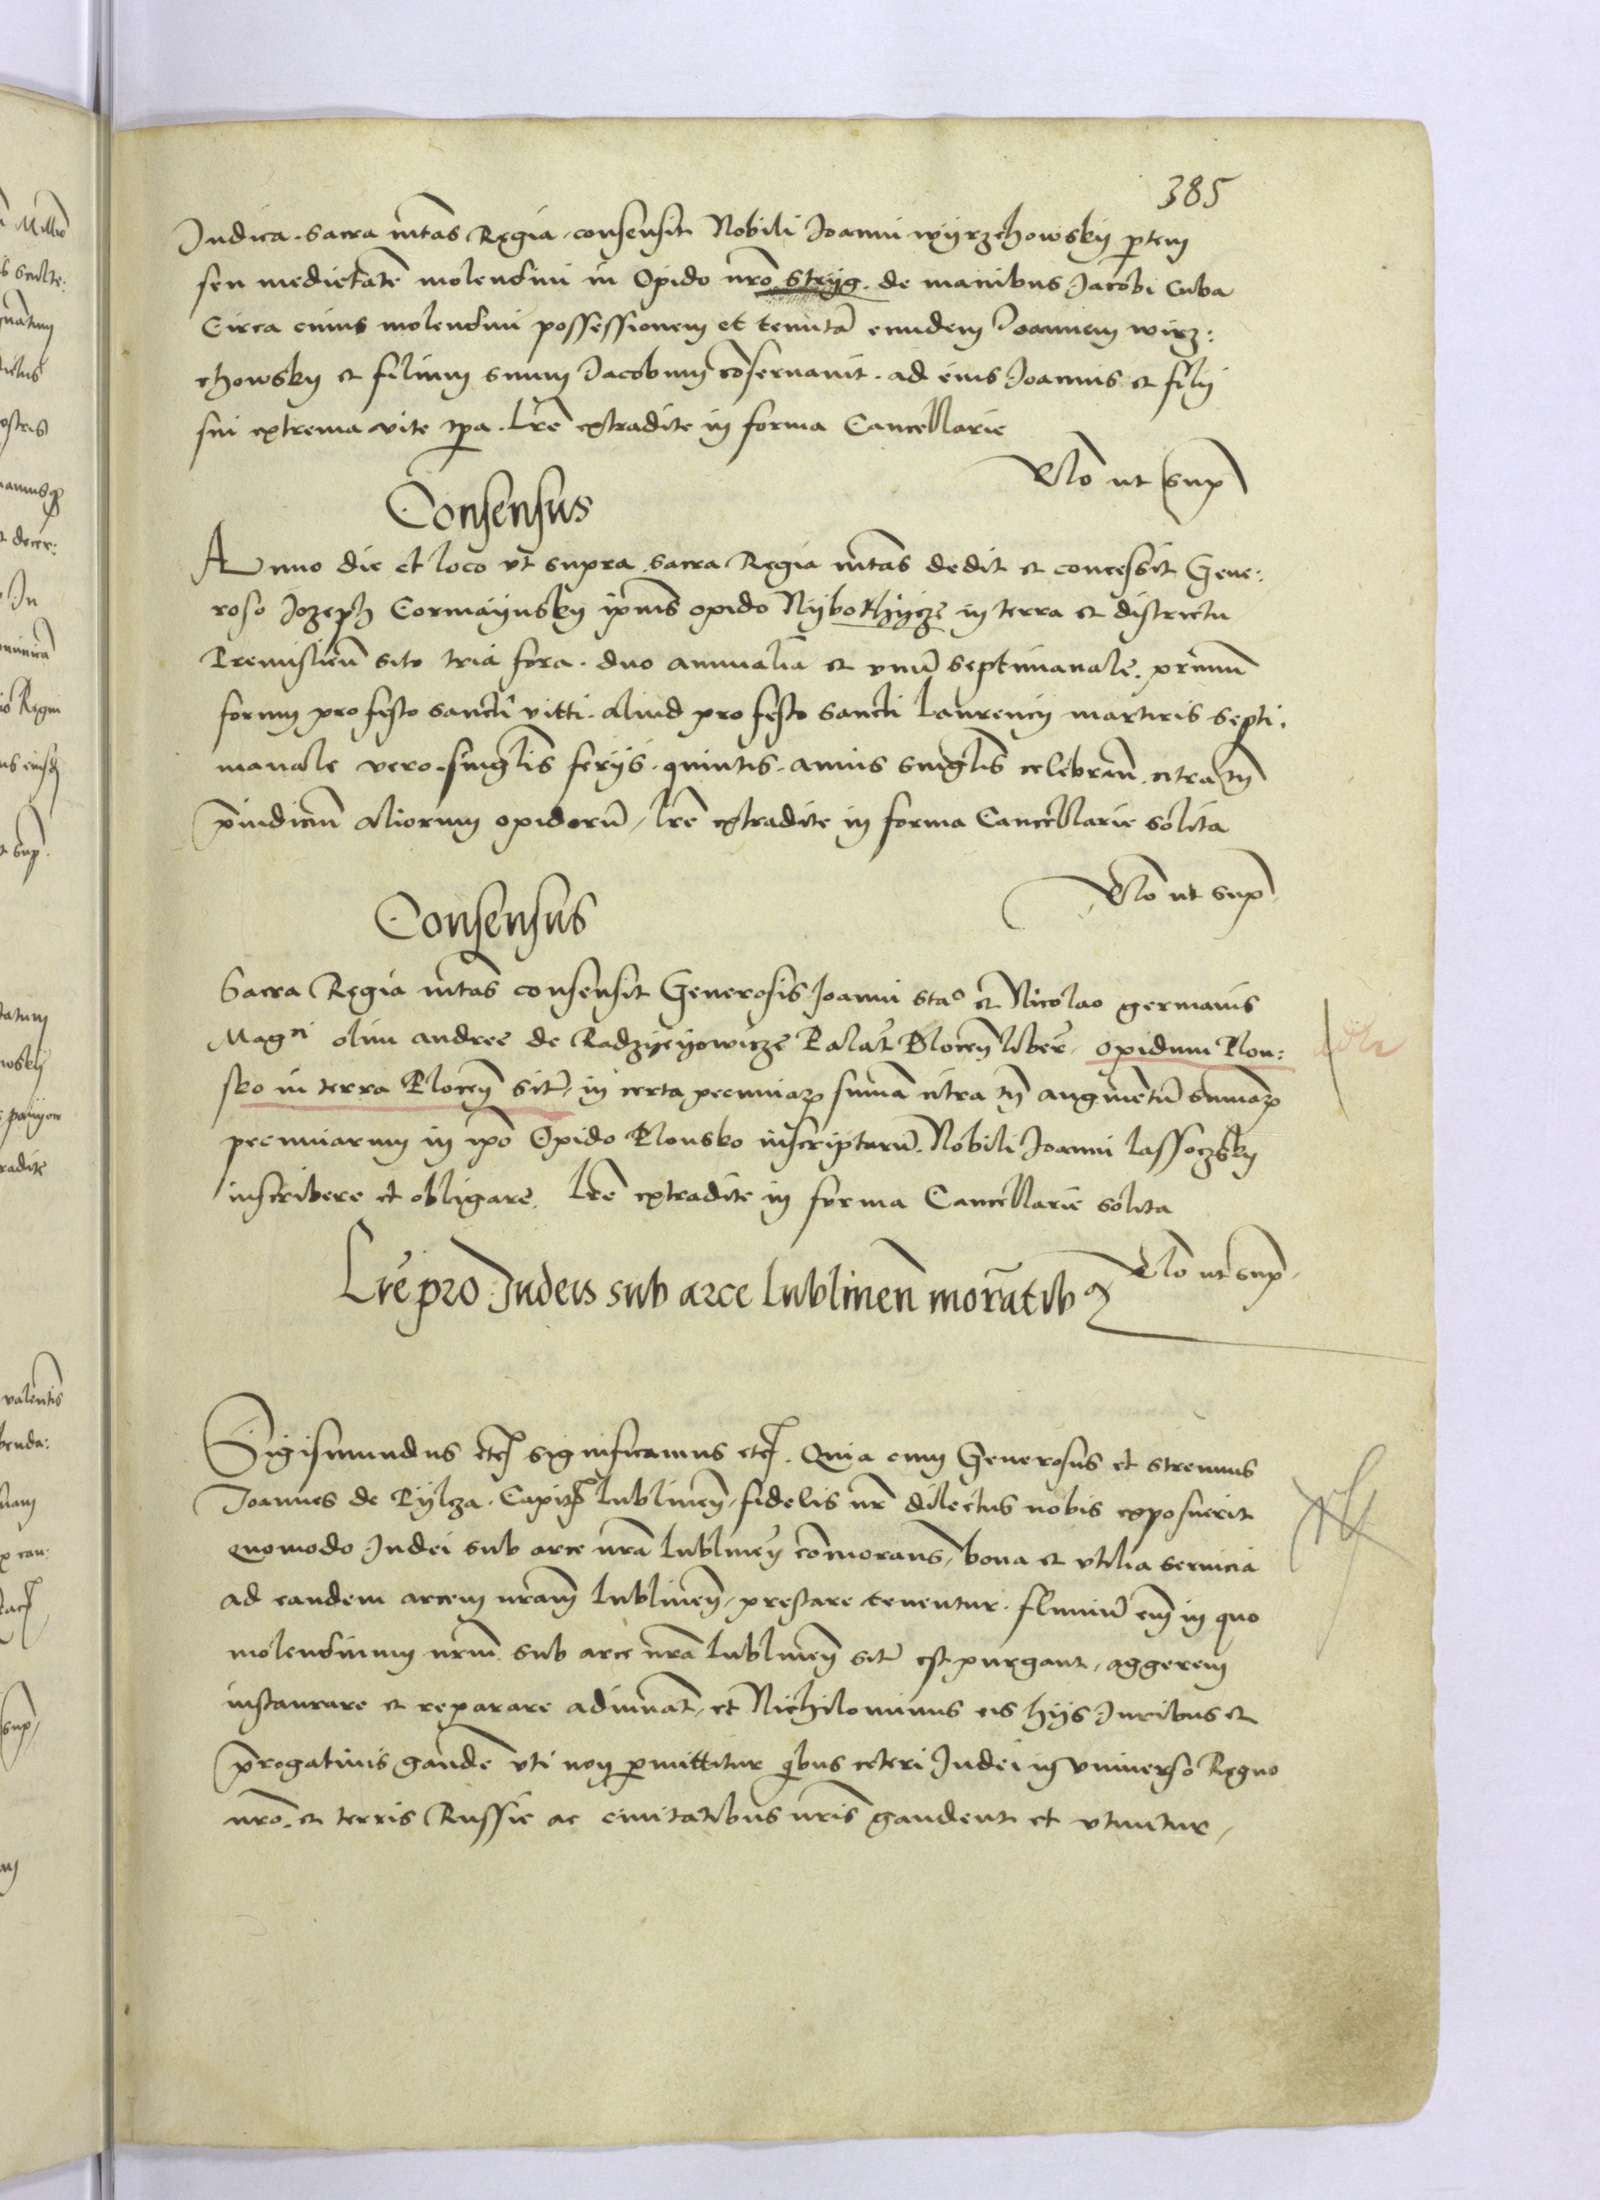 385
Judica. Sacra mtas Regia consensit Nobili Joanni wyrzchowsky ptem
seu medietatē molendini in Opido nro Stryg. de manibus Jacobi Cuba
Circa cuius molendini possessionem et tenutā eundem Joannem wirz:
chowsky et filium suum Jacobum cōservavit. ad eius Joannis et filij
sui extrema vite tpa. Lrē extradite in forma Cancellarie
Rlō ut sup
Consensus
Anno die et loco vt supra sacra Regia mtas dedit et concessit Gene:
roso Jozeph Cormanynsky ipius opido Nybothycze in terra et districtu
Premislień sito tria fora. duo annualia et vnū septimanale. primū
forum pro festo sancti vitti. Aliud pro festo sancti Laurencij martiris septi.
manale vero. singlis ferijs quintis. annis singlis celebrań citra tn̄
p̄iudiciū Aliorum opidorū, lrē extradite in forma Cancellarie solita
Rlō ut sup
Consensus
Sacra Regia mtas consensit Generosis Joanni sta° et Nicolao germanis
Magci olim andree de Radzyeyowicze Palat Plocen̄ liber. opidum Plon:
sko in terra Plocen̄ sitū, in certa pecuniaꝝ sum̄a citra tn̄ augmētū summaꝝ
pecuniarum in ipo Opido Plonsko inscriptarū. Nobili Joanni Lassoczsky
inscribere et obligare. Lrē extradite in forma Cancellarie solita
Rlō ut sup
Lrē pro Judeis sub arce Lublinen̄ morātibꝫ
Sigismundus etc significamus etc. Quia cum Generosus et strenuus
Joannes de Pylcza. Capit Lublinen̄, fidelis nr̄ dilectus nobis exposuerit
quomodo Judei sub arce nrā Lublinen̄ com̄orans, bona et vtilia servicia
ad eandem arcem nram̄ Lublinen̄, prestare tenentur. fluviū em̄ in quo
molendinum nrm̄ sub arce nrā Lublinen̄ sitū est purgant, aggerem
instaurare et reparare adiuvāt, et Nichilominus eis hijs Juribus et
p̄rogativis gaudē vti non p̱mittitur qibus ceteri Judei in vniverso Regno
nrō. et terris Russie ac civitatibus nris̄ gaudent et vtuntur,